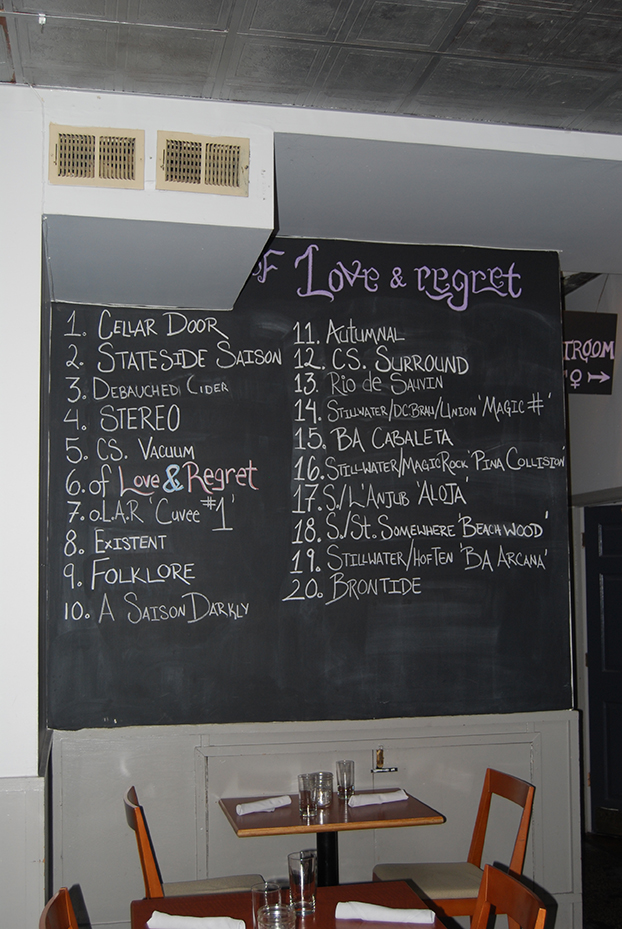 oF Love & regret
1. Cellar Door
2. Stateside Saison
3. Debauched Cider
4. Stereo
5. CS. Vacuum
6. of Love & Regret
7. o.L.A.R 'Cuvee #1'
8. Existent
9. Folklore
10. A Saison Darkly
11. Autumnal
12. CS. Surround
13. Rio de Sauvin
14. Stillwater/DC.Brau/Union 'Magic #'
15. BA Cabaleta
16. Stillwater/Magic Rock 'Pina Collision'
17. S./L'Anjub 'Aloja'
18. S./St. Somewhere 'Beachwood'
19. Stillwater/Hof Ten 'BA Arcana'
20. Brontide
TROOM